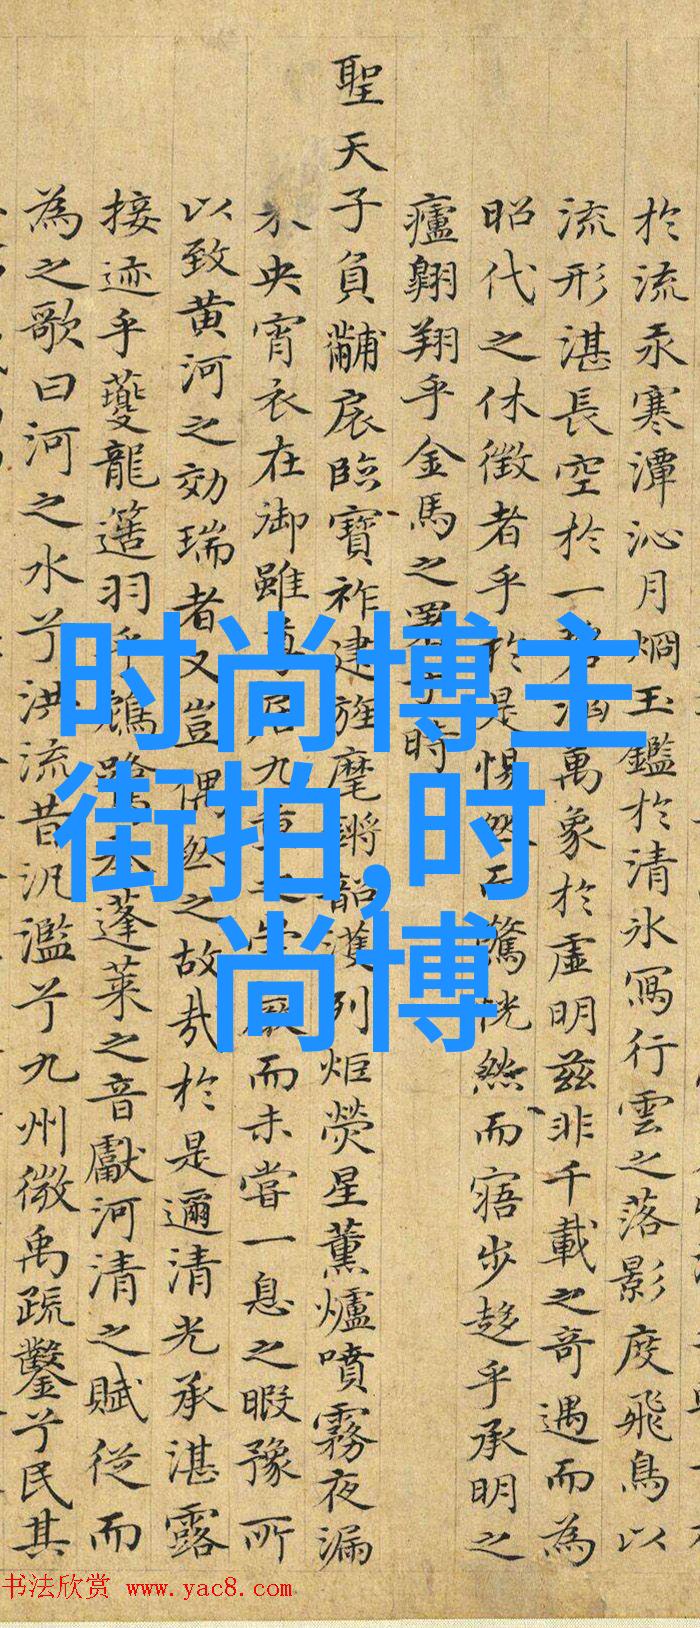 於流汞寒潭沁月烱玉鑑於清氷寫行雲之落影度飛鳥以
流形湛長空於一碧涵萬象於虛明茲非千載之奇遇而為
昭代之休徵者乎於是惕然而驚恍然而寤步趍乎承明之
廬翱翔乎金馬之署于時
聖天子負黼扆臨寶祚建旌麾鏘韶濩列炬熒星薰爐噴霧夜漏
未央宵衣在御雖尊居九重之崇嚴而未嘗一息之暇豫所
以致黄河之効瑞者又豈偶然之故哉於是邇清光承湛露
接迹乎夔龍簉羽乎鵷鷺蓬萊之音獻河清之賦從而
為之歌曰河之水兮洪流昔汎濫兮九州微禹疏鑿兮民其
时尚博主
街拍,时
尚博
书法欣赏 www.yac8.com